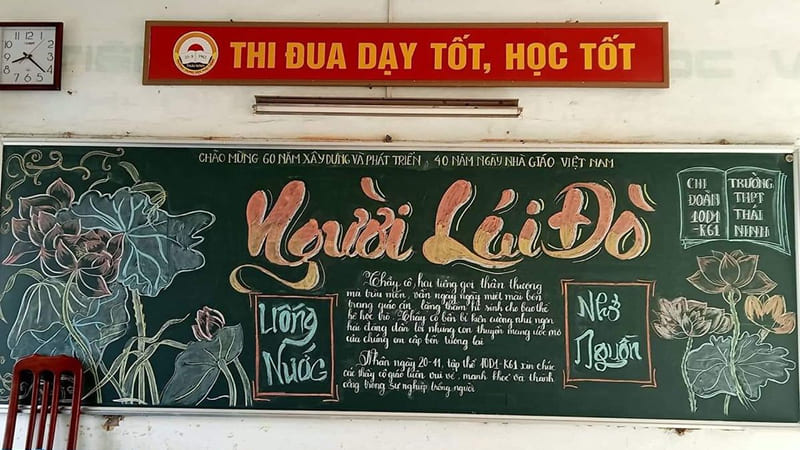 THI ĐUA DẠY TỐT, HỌC TỐT
CHÀO MỪNG 60 NĂM XÂY DỰNG VÀ PHÁT TRIỂN, 40 NĂM NGÀY NHÀ GIÁO VIỆT NAM
Người Lái Đò
CHI
ĐOÀN
10D1
-K61
TRƯỜNG
THPT
THÁI
NINH
Uống
Nước
Thầy cô, hai tiếng gọi thân thương
mà trìu mến, vẫn ngày ngày miệt mài bên
trang giáo án, lặng thầm hi sinh cho bao thế
hệ học trò. Thầy cô bền bỉ kiên cường như ngọn
hải đăng dẫn lối những con thuyền mang ước mơ
của chúng em cập bến tương lai
Nhân ngày 20-11, tập thể 10D1-K61 xin chúc
các thầy cô giáo luôn vui vẻ, mạnh khoẻ và thành
công trong sự nghiệp trồng người
Nhớ
Nguồn